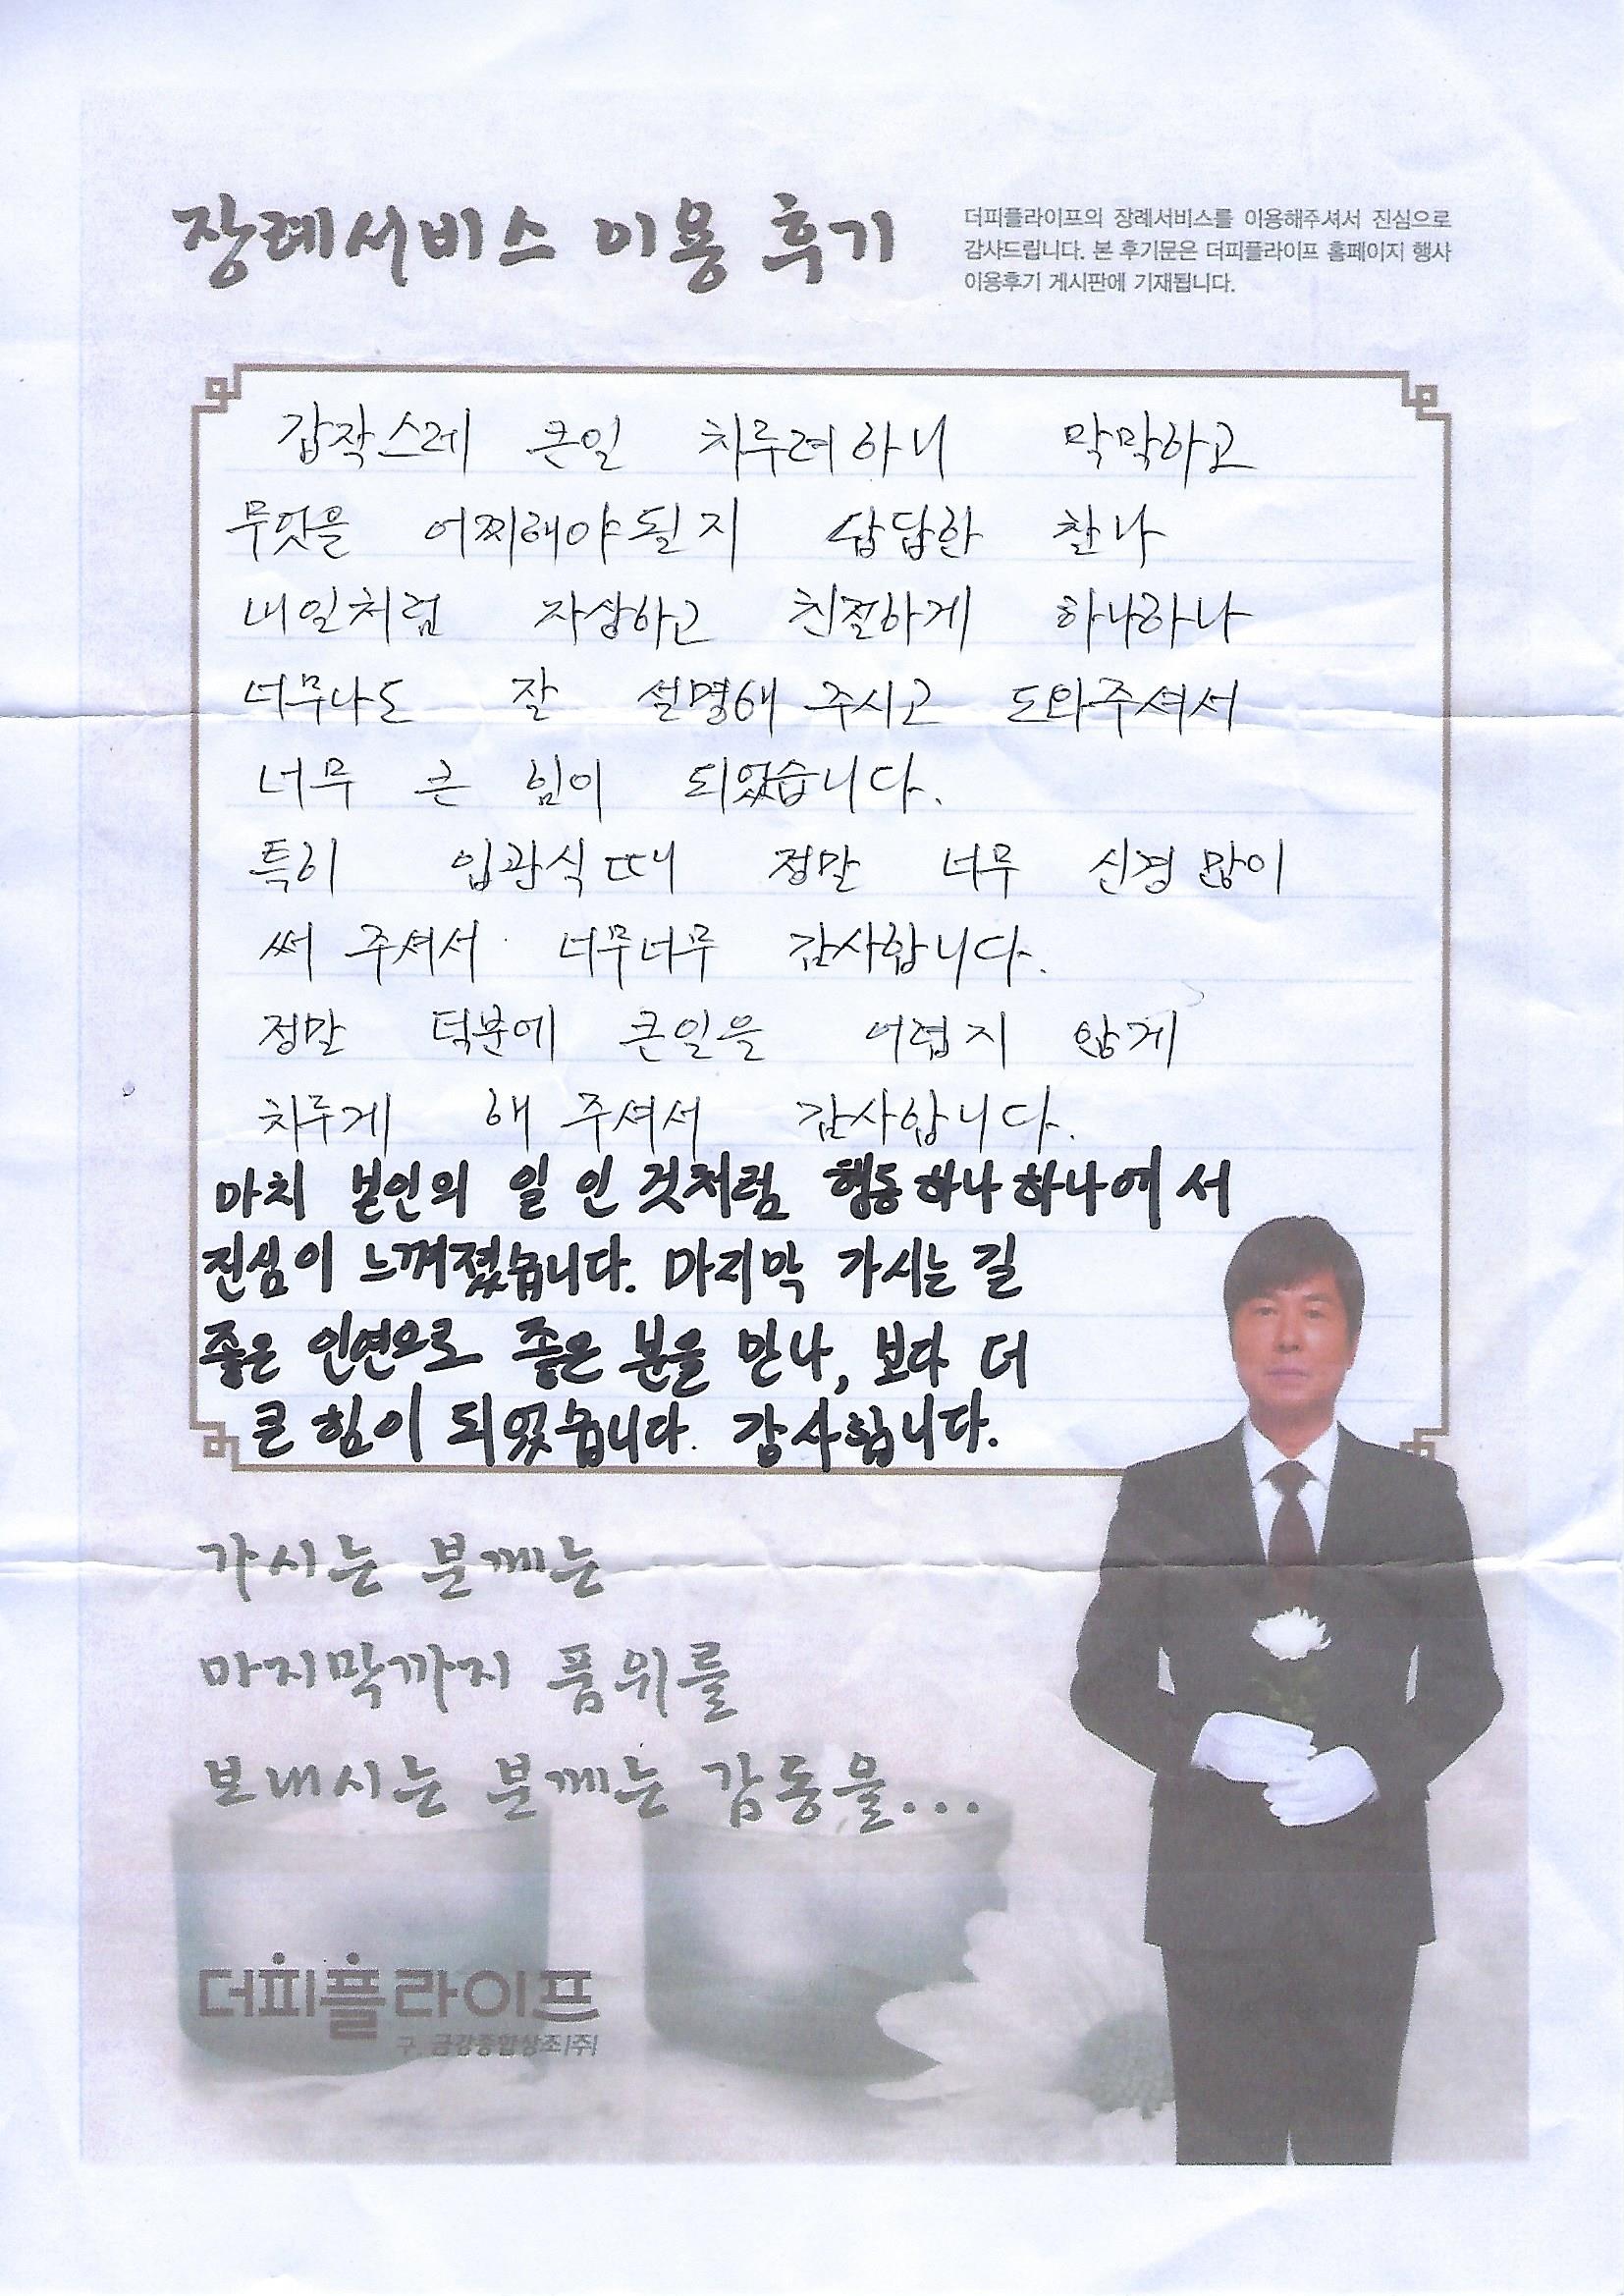 장례서비스 이용 후기
더피플라이프의 장례서비스를 이용해주셔서 진심으로
감사드립니다. 본 후기문은 더피플라이프 홈페이지 행사
이용후기 게시판에 기재됩니다.
갑작스레 큰일 치루려하니 막막하고
무엇을 어찌해야될지 답답한 찰나
내일처럼 자상하고 친절하게 하나하나
너무나도 잘 설명해 주시고 도와주셔서
너무 큰 힘이 되었습니다.
특히 입관식때 정말 너무 신경 많이
써 주셔서 너무너무 감사합니다.
정말 덕분에 큰일을 어렵지 않게
치루게 해 주셔서 감사합니다.
마치 본인의 일 인 것처럼 행동하나하나에서
진심이 느껴졌습니다. 마지막 가시는 길
좋은 인연으로 좋은 분을 만나, 보다 더
큰 힘이 되었습니다. 감사합니다.
가시는 분께는
마지막까지 품위를
보내시는 분께는 감동을...
더피플라이프
구. 금강종합상조(주)